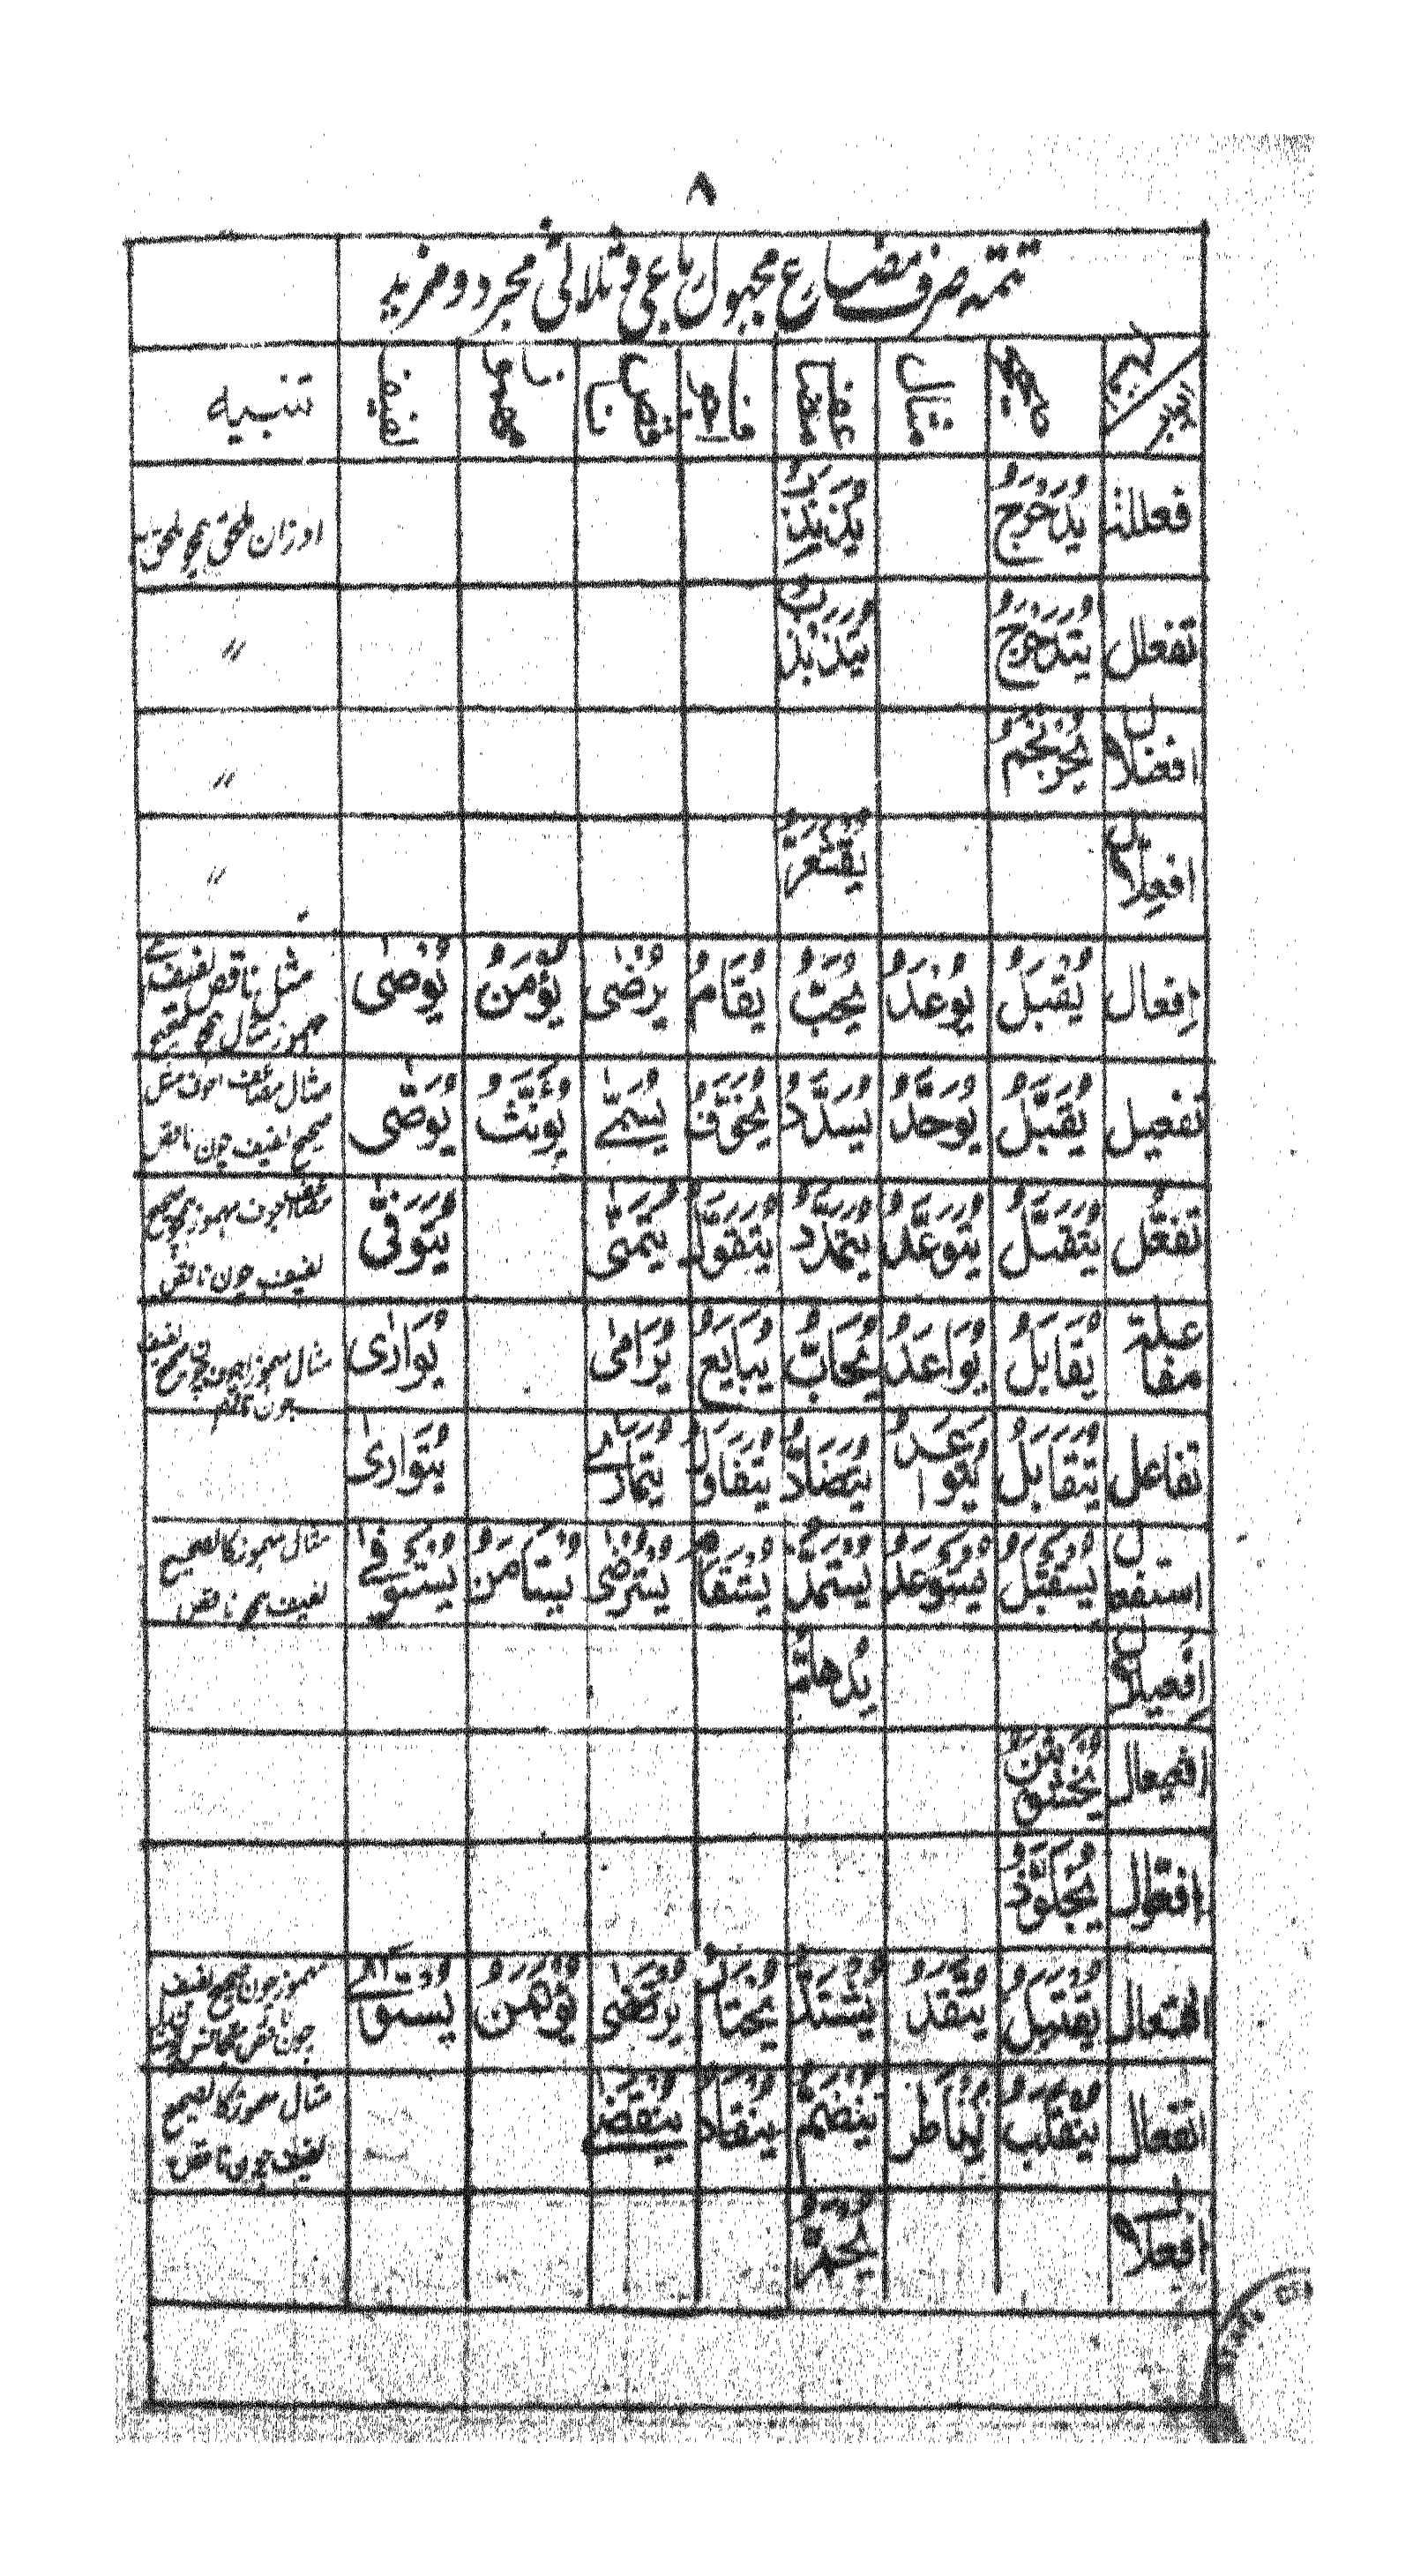 ٨
تتمه صرف مضارع مجهول رباعی و ثلاثی مجرد و مزید
صحیح مثال مضاعف اجوف ناقص مهموز لفیف تنبیه
فعللة یُدَحْرَجُ یُذَبْذَبُ اوزان ملحق همچو ملحق به
تفعلل یُتَدَحْرَجُ یُتَذَبْذَبُ 〃
افعنلال یُحْرَنْجَمُ 〃
افعلال یُقْشَعَرُّ 〃
اِفعال یُقْبَلُ یُوعَدُ یُحَبُّ یُقَامُ یُرْضٰی یُؤْمَنُ یُوصٰی
تفعیل یُقَبَّلُ یُوَحَّدُ یُسَدَّدُ یُخَوَّفُ یُسَمّٰے یُؤَنَّثُ یُوَصّٰی مثال مضاعف اجوف مثل صحیح لفیف چون ناقص
تفعّل یُتَقَبَّلُ یُتَوَعَّدُ یُتَمَدَّدُ یُتَقَوَّلُ یُتَمَنّٰی یُتَوَفّٰی مضاعف اجوف مهموز همچو صحیح لفیف چون ناقص
مفاعلة یُقَابَلُ یُوَاعَدُ یُحَابُّ یُبَایَعُ یُرَامٰی یُوَارٰی
تفاعل یُتَقَابَلُ یُتَوَاعَدُ یُتَضَادُّ یُتَفَاوَلُ یُتَمَارٰے یُتَوَارٰی
استفعال یُسْتَقْبَلُ یُسْتَوْعَدُ یُسْتَمَدُّ یُسْتَقَامُ یُسْتَرْضٰی یُسْتَأْمَنُ یُسْتَوْفٰے مثال مهموز کالصحیح لفیف همچو ناقص
افعیلال یُدْهَامُّ
افعیعال یُخْشَوْشَنُ
افعوّال یُجْلَوَّذُ
افتعال یُقْتَبَلُ یُتَّقَدُ یُشْتَدُّ یُخْتَارُ یُرْتَضٰی یُؤْتَمَنُ
انفعال یُنْقَلَبُ یُنَاطَرُ یُنْضَمُّ یُنْقَادُ یُنْقَضٰے مثال مهموز کالصحیح لفیف چون ناقص
افعلال یُحْمَرُّ